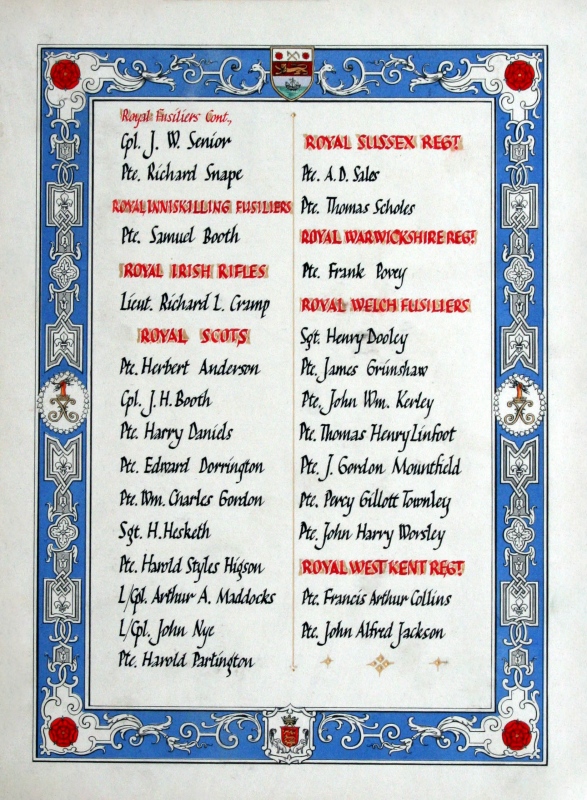 Royal Fusiliers Cont.,
Cpl. J. W. Senior
Pte. Richard Snape
ROYAL INNISKILLING FUSILIERS
Pte. Samuel Booth
ROYAL IRISH RIFLES
Lieut. Richard L. Cramp
ROYAL SCOTS
Pte. Herbert Anderson
Cpl. J. H. Booth
Pte. Harry Daniels
Pte. Edward Dorrington
Pte. Wm. Charles Gordon
Sgt. H. Hesketh
Pte. Harold Styles Higson
L/Cpl. Arthur A. Maddocks
L/Cpl. John Nye
Pte. Harold Partington
ROYAL SUSSEX REGT.
Pte. A. D. Sales
Pte. Thomas Scholes
ROYAL WARWICKSHIRE REGT.
Pte. Frank Povey
ROYAL WELCH FUSILIERS
Sgt. Henry Dooley
Pte. James Grunshaw
Pte. John Wm. Kerley
Pte. Thomas Henry Linfoot
Pte. J. Gordon Mountfield
Pte. Percy Gillott Townley
Pte. John Harry Worsley
ROYAL WEST KENT REGT.
Pte. Francis Arthur Collins
Pte. John Alfred Jackson